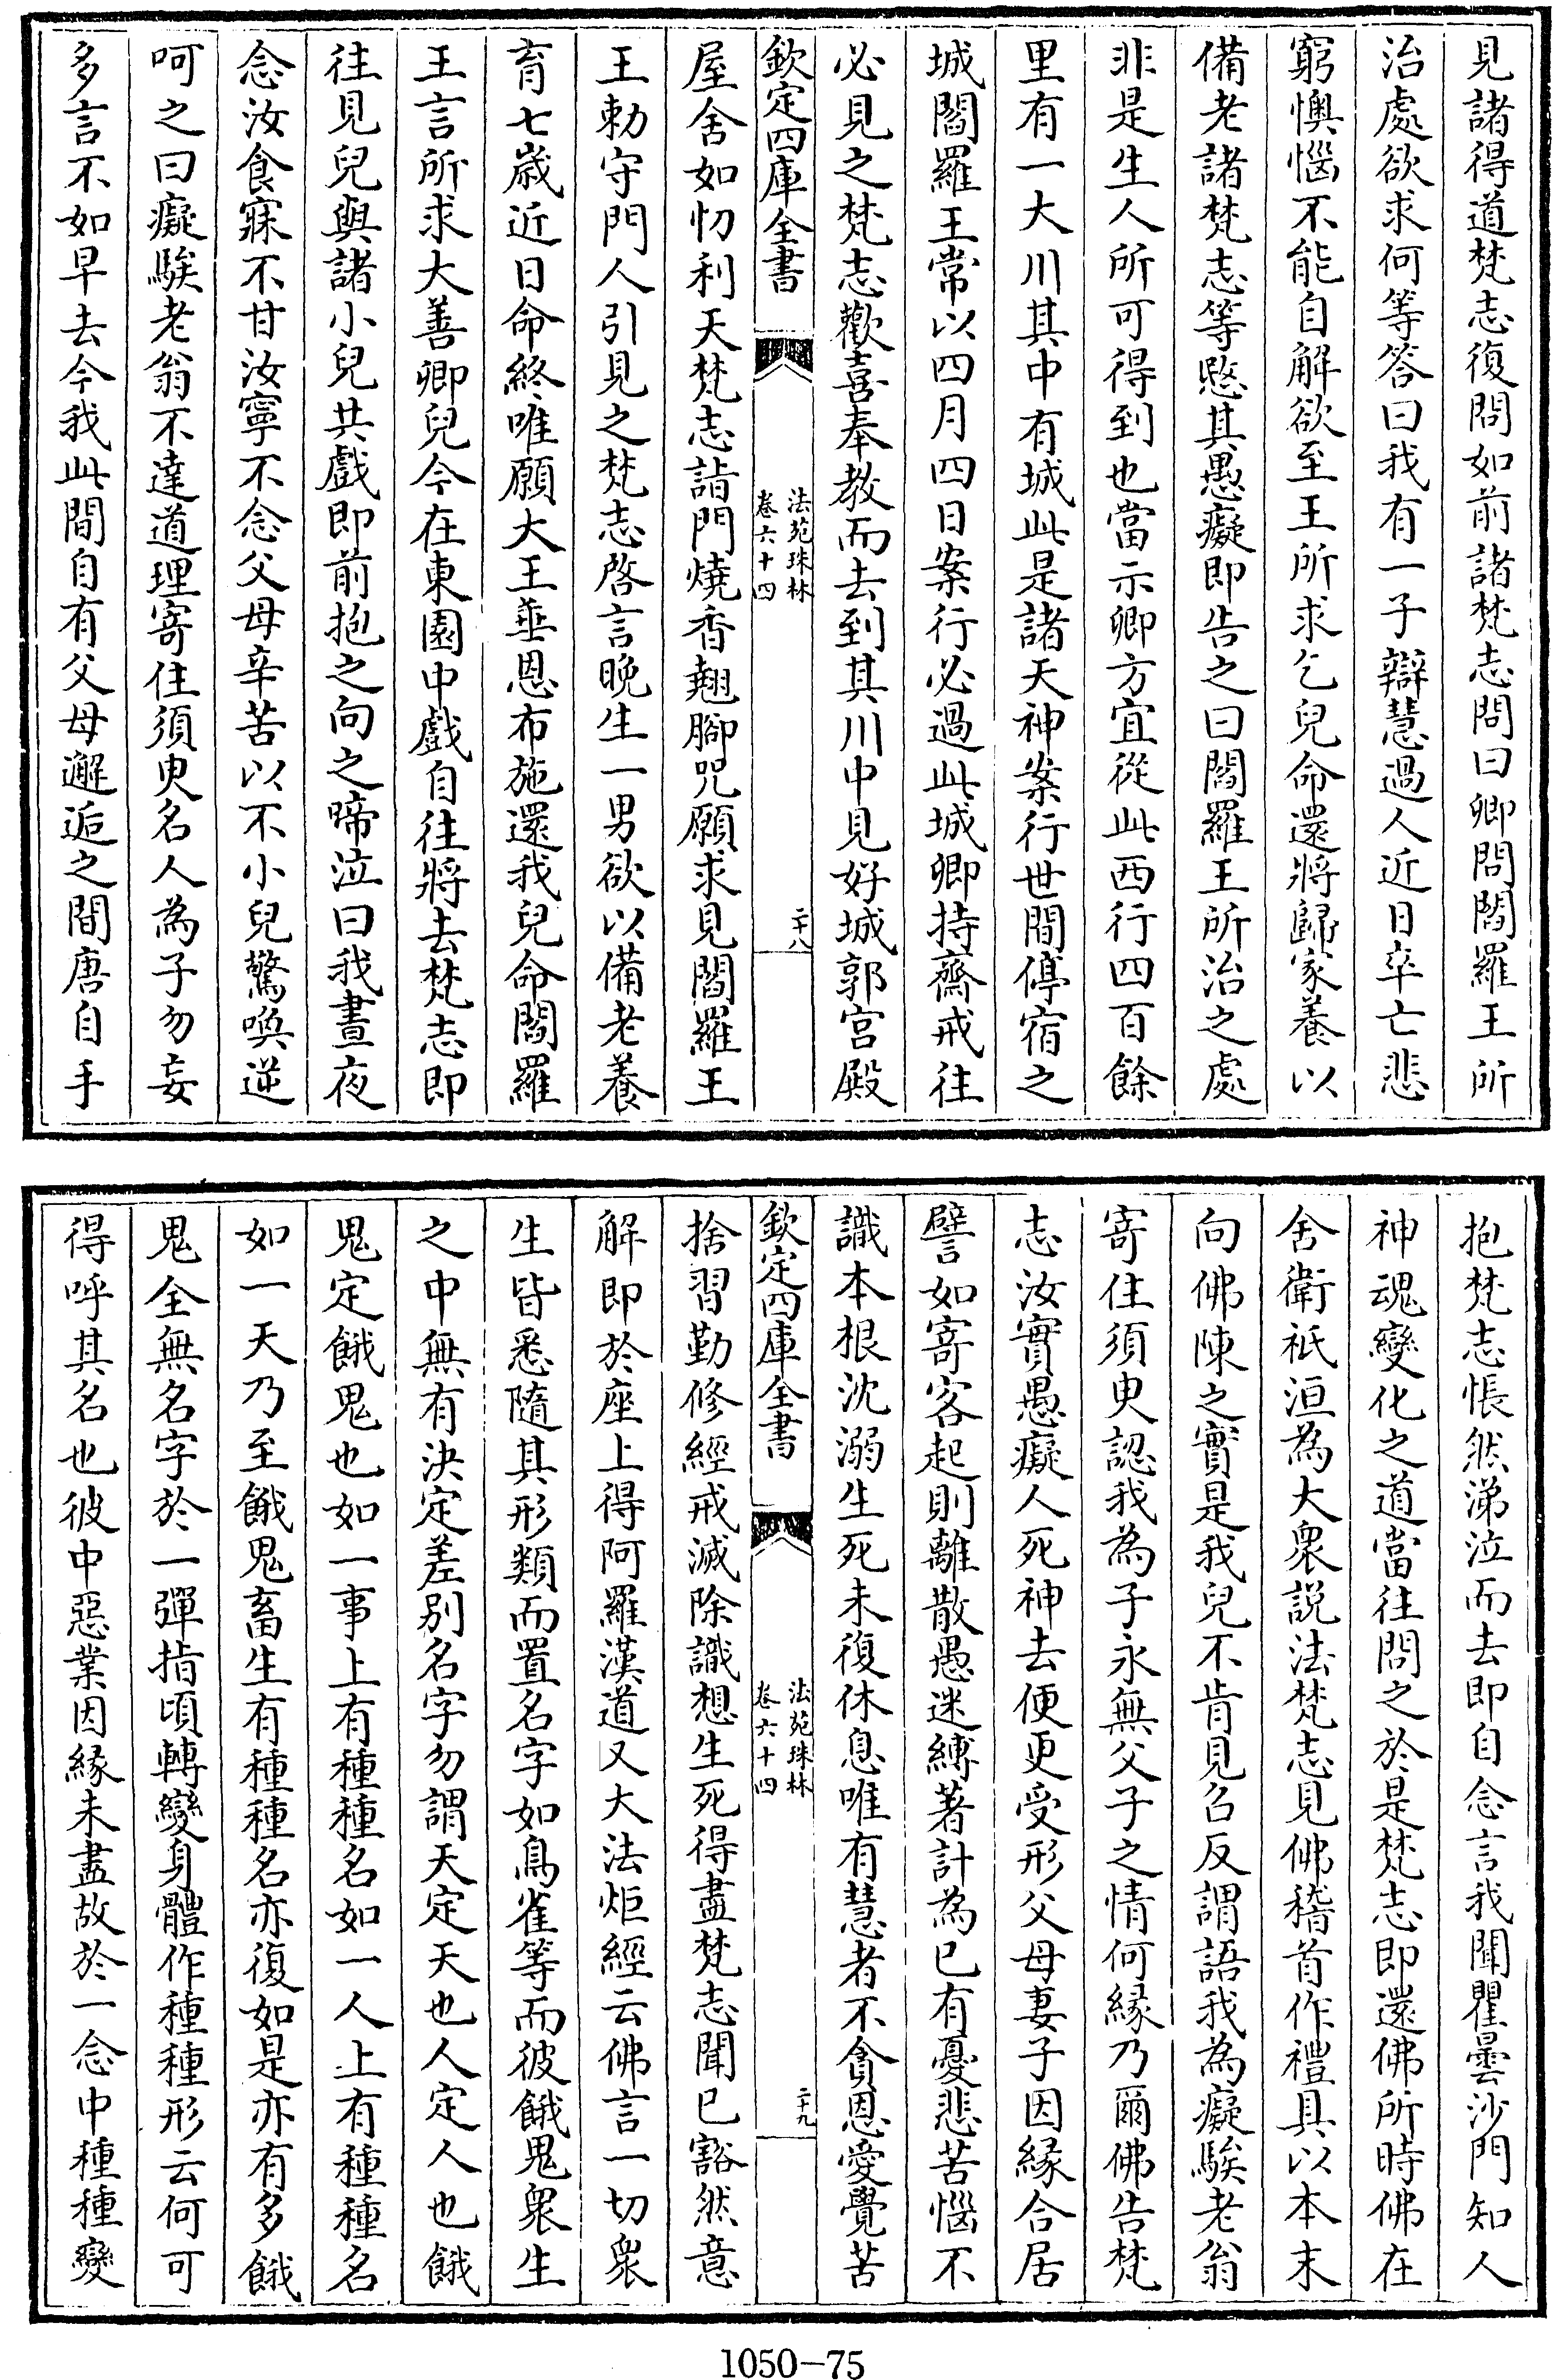 見諸得道梵志復問如前諸梵志問曰卿問閻羅王所
治處欲求何等答曰我有一子辯慧過人近日卒亡悲
窮懊惱不能自解欲至王所求乞兒命還將歸家養以
備老諸梵志等愍其愚癡即告之曰閻羅王所治之處
非是生人所可得到也當示卿方宜從此西行四百餘
里有一大川其中有城此是諸天神案行世間停宿之
城閻羅王常以四月四日案行必過此城卿持齋戒往
必見之梵志歡喜奉教而去到其川中見好城郭宮殿
欽定四庫全書
法苑珠林
卷六十四
二十八
屋舍如忉利天梵志詣門燒香翹腳咒願求見閻羅王
王勅守門人引見之梵志啓言晚生一男欲以備老養
育七歲近日命終唯願大王垂恩布施還我兒命閻羅
王言所求大善卿兒今在東園中戲自往將去梵志即
往見兒與諸小兒共戲即前抱之向之啼泣曰我晝夜
念汝食寐不甘汝寧不念父母辛苦以不小兒驚喚逆
呵之曰癡騃老翁不達道理寄住須臾名人為子勿妄
多言不如早去今我此間自有父母邂逅之間唐自手
抱梵志悵然涕泣而去即自念言我聞瞿曇沙門知人
神魂變化之道當往問之於是梵志即還佛所時佛在
舍衛祇洹為大衆說法梵志見佛稽首作禮具以本末
向佛陳之實是我兒不肯見召反謂語我為癡騃老翁
寄住須臾認我為子永無父子之情何緣乃爾佛告梵
志汝實愚癡人死神去便更受形父母妻子因緣合居
譬如寄客起則離散愚迷縛著計為已有憂悲苦惱不
識本根沈溺生死未復休息唯有慧者不貪恩愛覺苦
欽定四庫全書
法苑珠林
卷六十四
二十九
捨習勤修經戒滅除識想生死得盡梵志聞已豁然意
解即於座上得阿羅漢道又大法炬經云佛言一切衆
生皆悉隨其形類而置名字如鳥雀等而彼餓鬼衆生
之中無有決定差別名字勿謂天定天也人定人也餓
鬼定餓鬼也如一事上有種種名如一人上有種種名
如一天乃至餓鬼畜生有種種名亦復如是亦有多餓
鬼全無名字於一彈指頃轉變身體作種種形云何可
得呼其名也彼中惡業因緣未盡故於一念中種種變
1050-75